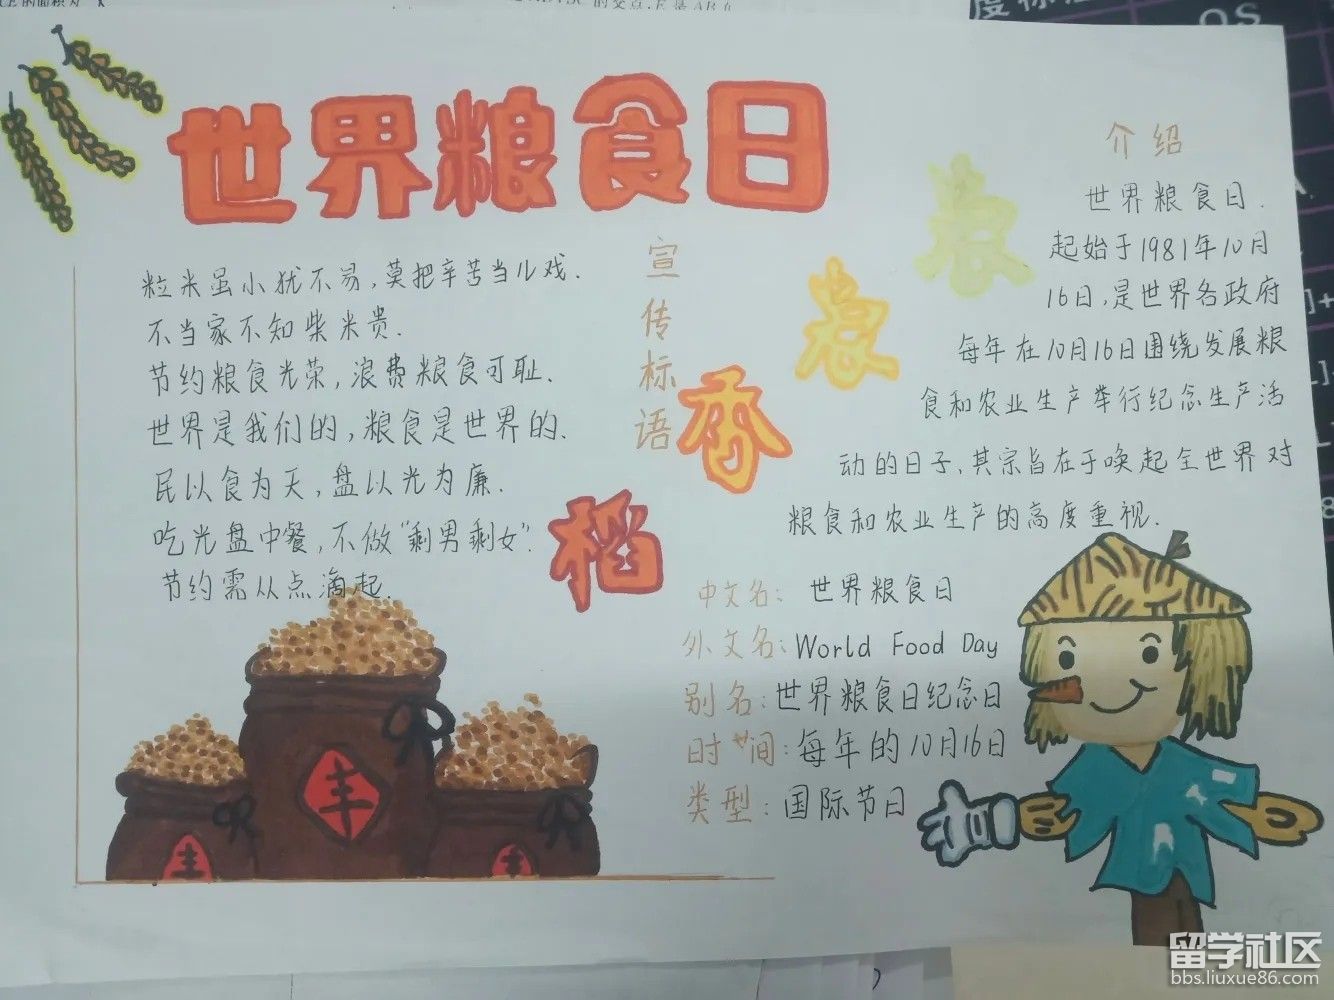 世界粮食日
宣传标语
粒米虽小犹不易,莫把辛苦当儿戏.
不当家不知柴米贵.
节约粮食光荣,浪费粮食可耻.
世界是我们的,粮食是世界的.
民以食为天,盘以光为廉.
吃光盘中餐,不做“剩男剩女”.
节约需从点滴起.
稻香农农
介绍
世界粮食日.
起始于1981年10月
16日,是世界各政府
每年在10月16日围绕发展粮
食和农业生产举行纪念生产活
动的日子,其宗旨在于唤起全世界对
粮食和农业生产的高度重视.
中文名:世界粮食日
外文名:World Food Day
别名:世界粮食日纪念日
时间:每年的10月16日
类型:国际节日
丰
丰
丰
留学社区
bbs.liuxue86.com